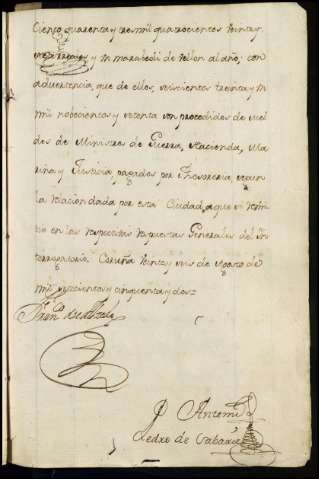 Ciento quarenta y tres mil quatrocientos Veinte y
reales y un maravedi de Vellon al año, con
advertencia, que de ellos, seiscientos treinta y un
mil nobecientos y setenta son procedidos de suel
dos de Ministros de Guerra, Hacienda, Ma
rina y Justicia pagados por Thesoreria, segun
la Relacion dada por esta Ciudad, a que se remi
tio en las respectivas Respuertas Generales del In
terrogatorio. Coruña Veinte y seis de Agosto de
mil setecientos y cinquenta y dos=
Antonio
Pedro de